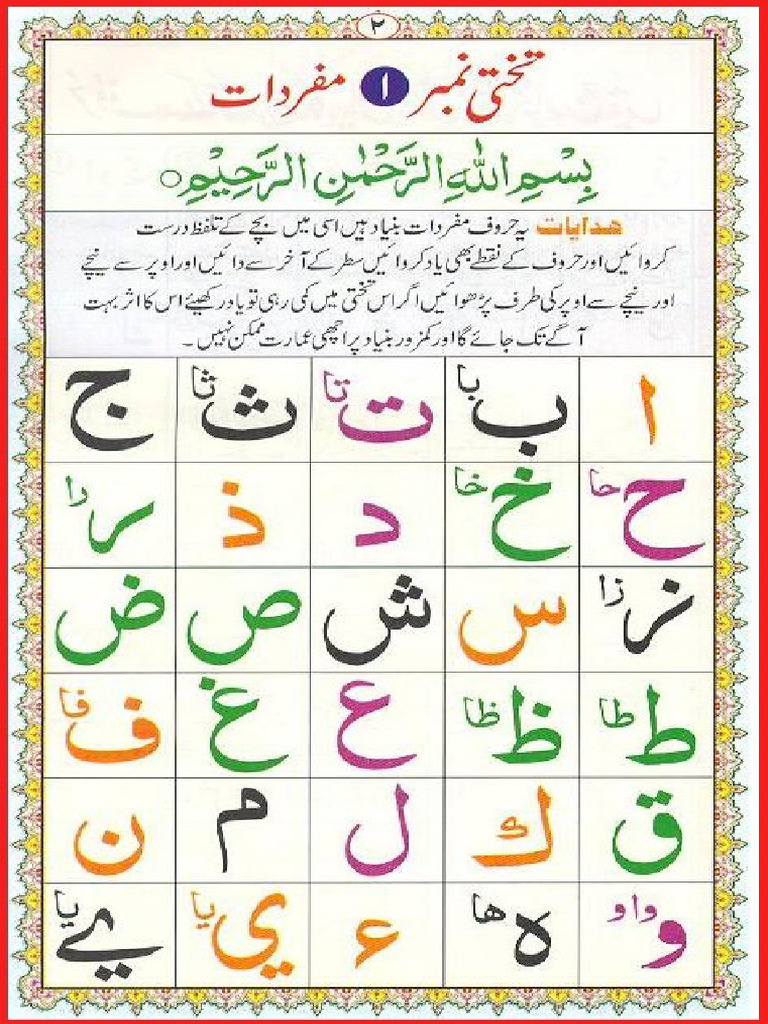 ٢
تختی نمبر ١ مفردات
بِسْمِ اللّٰهِ الرَّحْمٰنِ الرَّحِيْمِ○
ھدایات یہ حروف مفردات بنیاد ہیں اسی میں بچے کے تلفظ درست
کروائیں اور حروف کے نقطے بھی یاد کروائیں سطر کے آخر سے دائیں اور اوپر سے نیچے
اور نیچے سے اوپر کی طرف پڑھوائیں اگر اس تختی میں کمی رہی تو یاد رکھیئے اس کا اثر بہت
آگے تک جائے گا اور کمزور بنیاد پر اچھی عمارت ممکن نہیں۔
ا ب با ت تا ث ثا ج
ح حا خ خا د ذ ر را
ز زا س ش ص ض
ط طا ظ ظا ع غ ف فا
ق ك ل م ن
و واو ه ها ء ي يا ے يا